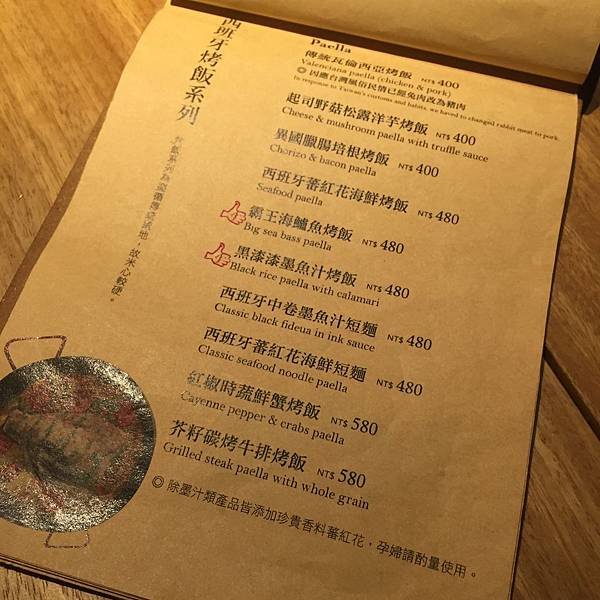 西班牙烤飯系列
炸飯系列為遵循傳統道地，故米心較硬。
Paella
傳統瓦倫西亞烤飯 NT$ 400
Valenciana paella (chicken & pork)
◎ 因應台灣風俗民情已經兔肉改為豬肉
In response to Taiwan's customs and habits, we haved to changed rabbit meat to pork.
起司野菇松露洋芋烤飯 NT$ 400
Cheese & mushroom paella with truffle sauce
異國臘腸培根烤飯 NT$ 400
Chorizo & bacon paella
西班牙蕃紅花海鮮烤飯 NT$ 480
Seafood paella
霸王海鱸魚烤飯 NT$ 480
Big sea bass paella
黑漆漆墨魚汁烤飯 NT$ 480
Black rice paella with calamari
西班牙中卷墨魚汁短麵 NT$ 480
Classic black fideua in ink sauce
西班牙蕃紅花海鮮短麵 NT$ 480
Classic seafood noodle paella
紅椒時蔬鮮蟹烤飯 NT$ 580
Cayenne pepper & crabs paella
芥籽碳烤牛排烤飯 NT$ 580
Grilled steak paella with whole grain
◎ 除墨汁類產品皆添加珍貴香料蕃紅花，孕婦請酌量使用。